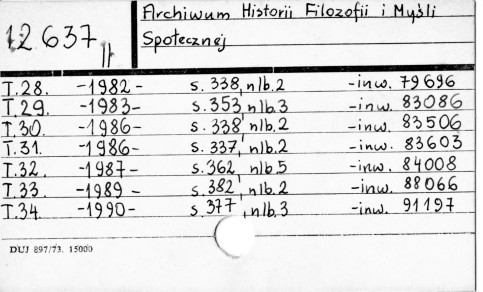 12 637 II
Archiwum Historii Filozofii i Myśli
Społecznej
T.28. -1982- s. 338, nlb.2 -inw. 79696
T.29. -1983- s. 353, nlb.3 -inw. 83086
T.30. -1986- s. 338, nlb.2 -inw. 83506
T.31. -1986- s. 337, nlb.2 -inw. 83603
T.32. -1987- s. 362, nlb.5 -inw. 84008
T.33. -1989- s. 382, nlb.2 -inw. 88066
T.34. -1990- s. 377, nlb.3 -inw. 91197
DUJ 897/73. 15000